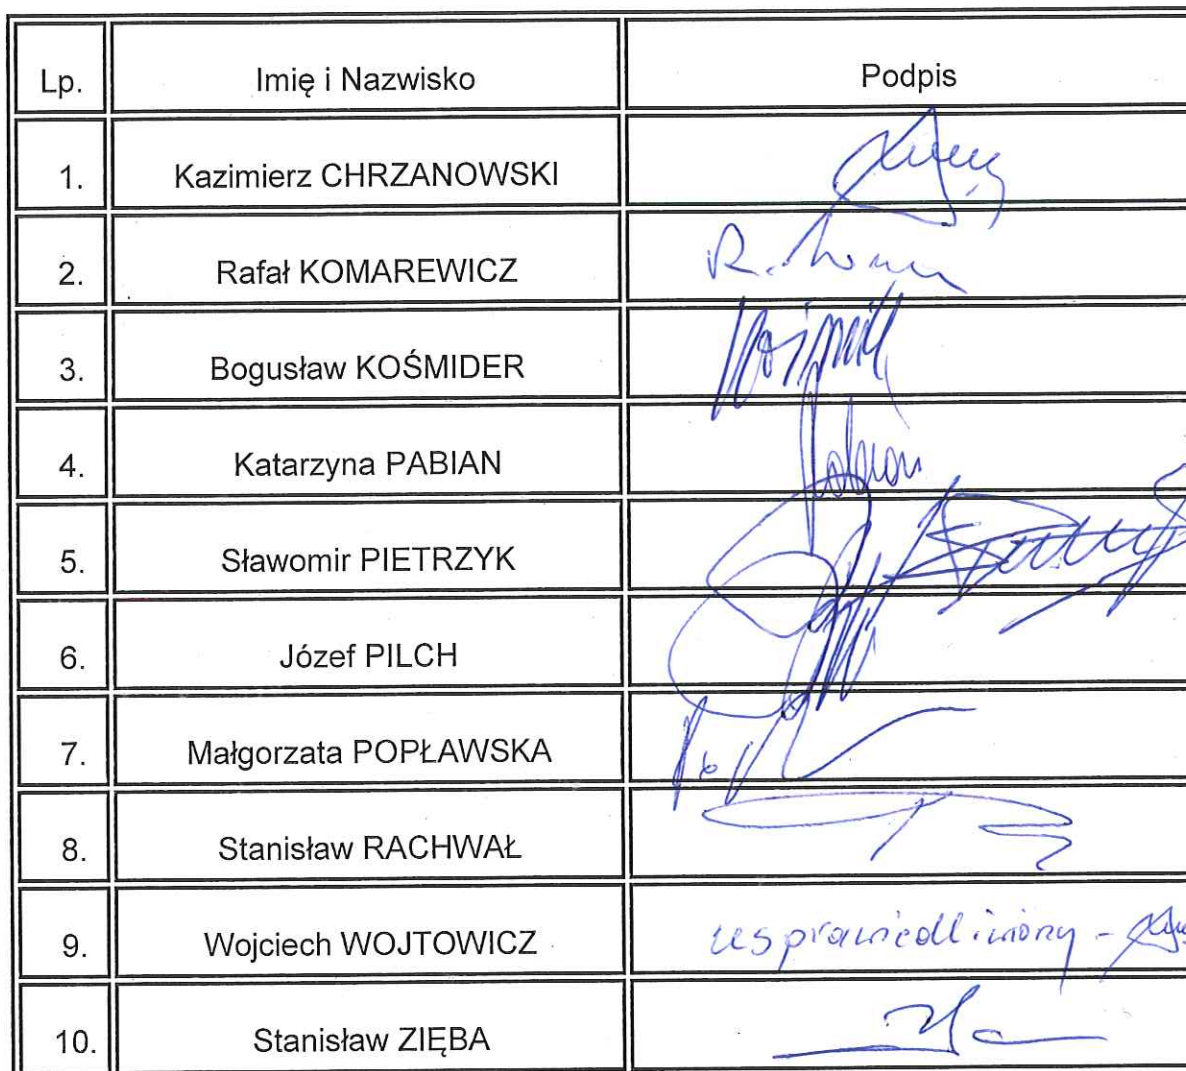 Lp. Imię i Nazwisko Podpis
1. Kazimierz CHRZANOWSKI
2. Rafał KOMAREWICZ R.
3. Bogusław KOŚMIDER
4. Katarzyna PABIAN Pabian
5. Sławomir PIETRZYK
6. Józef PILCH
7. Małgorzata POPŁAWSKA
8. Stanisław RACHWAŁ
9. Wojciech WOJTOWICZ usprawiedliwiony -
10. Stanisław ZIĘBA